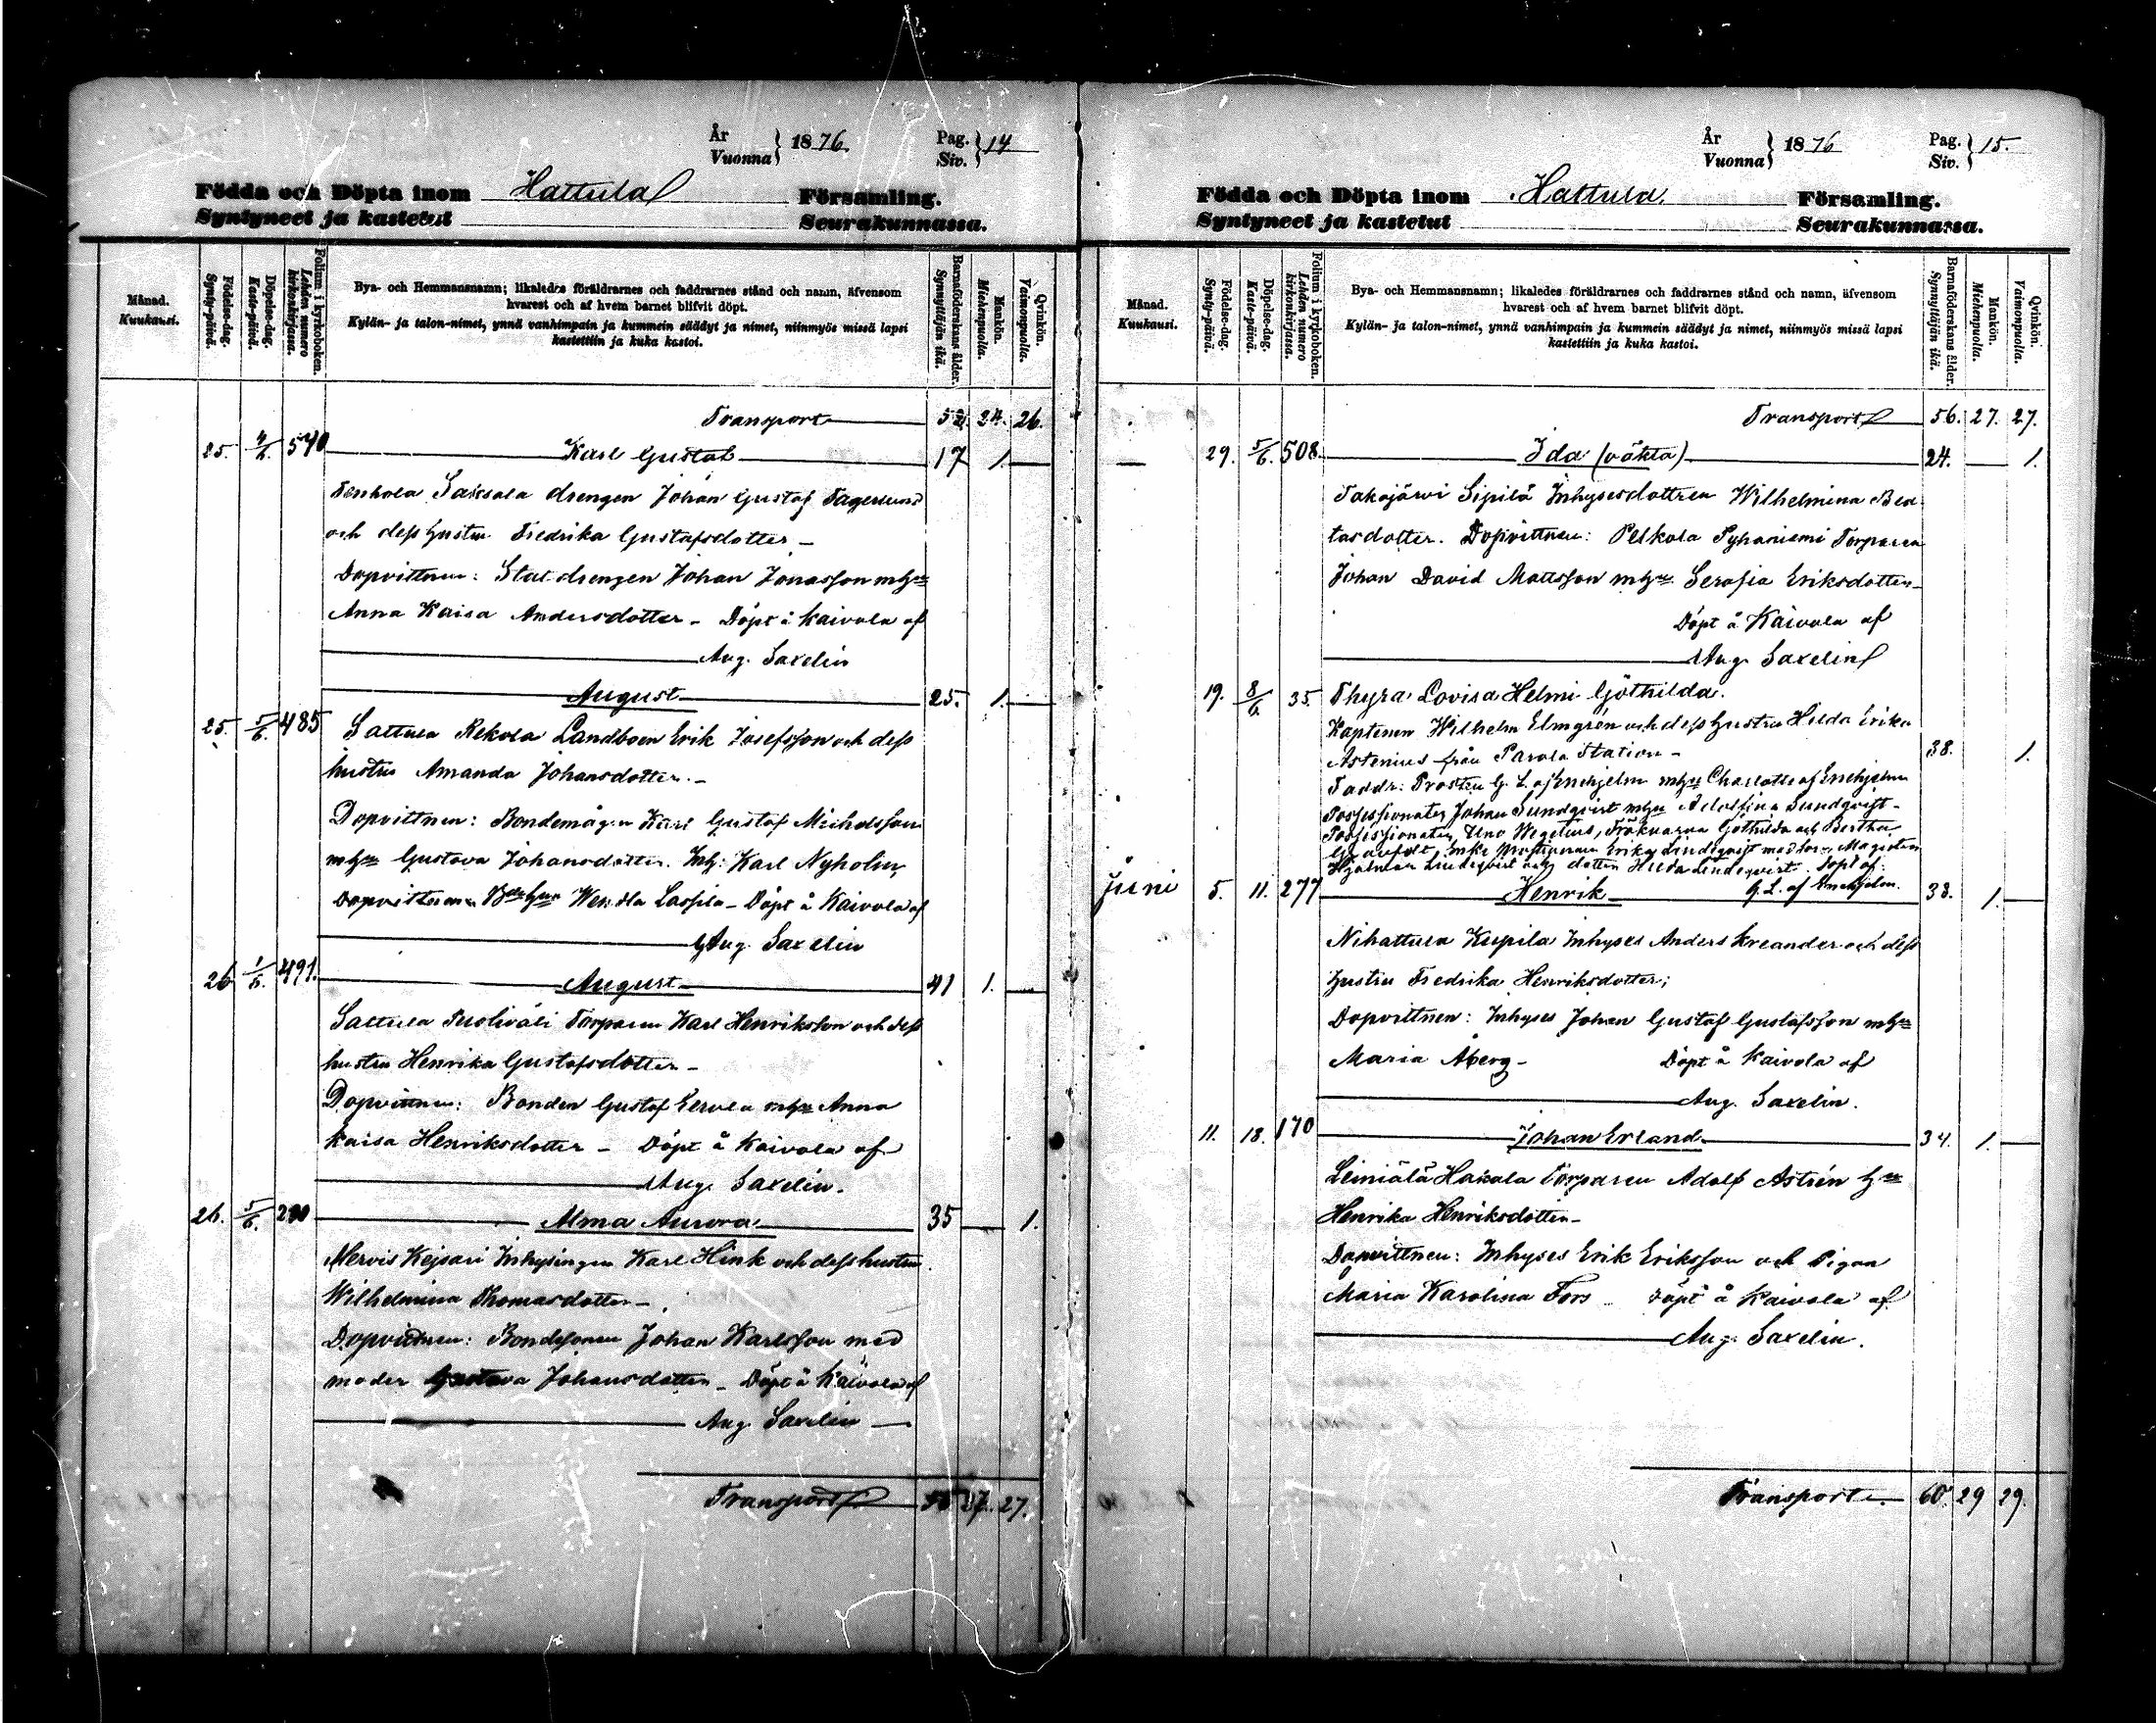 År
Vuonna } 1876. Pag.
Siv. } 14
Födda och Döpta inom Hattula Församling.
Syntyneet ja kastetut Seurakunnassa.
Månad.
Kuukausi.
Födelse-dag.
Synty-päivä.
Döpelse-dag.
Kaste-päivä.
Folium i kyrkoboken.
Lehden numero
kirkonkirjassa.
Bya- och Hemmansnamn; likaledes föräldrarnes och faddrarnes stånd och namn, äfvensom
hvarest och af hvem barnet blifvit döpt.
Kylän- ja talon-nimet, ynnä vanhimpain ja kummein säädyt ja nimet, niinmyös missä lapsi
kastettiin ja kuka kastoi.
Barnaföderskans ålder.
Synnyttäjän ikä.
Mankön.
Miehenpuolia.
Qvinkön.
Vaimonpuolia.
Transport 24. 26.
25. 540 Karl Gustaf 17 1.
Saksala drengen Johan Gustaf Fagerlund
och dess hustru Fredrika Gustafsdotter –
Dopvittnen: Stat drengen Johan Jonasson mhru
Anna Kaisa Andersdotter – Döpt å Kaivola af
Aug. Saxelin
August 25. 1.
25. 5/6. 485 Sattula Rekola Landboen Erik Josefsson och dess
hustru Amanda Johansdotter. –
Dopvittnen: Bondemågen Karl Gustaf Michelsson
mhru Gustava Johansdotter. Inh: Karl Nyholm,
Wendla Lassila – Döpt å Kaivola af
Aug. Saxelin
26 491. August 41 1.
Sattula Tuoliväli Torparen Karl Henriksson och dess
hustru Henrika Gustafsdotter –
Dopvittnen: Bonden Gustaf Eerola mhru Anna
Kaisa Henriksdotter – Döpt å Kaivola af
Aug. Saxelin.
26. 5/6. Alma Aurora 35 1.
Mervis Kejsari Inhysingen Karl Hink och dess hustru
Wilhelmina Thomasdotter –
Dopvittnen: Bondesonen Johan Karlsson med
moder Gustava Johansdotter – Döpt å Kaivola af
Aug. Saxelin
Transport 27. 27.
År
Vuonna } 1876 Pag.
Siv. } 15.
Födda och Döpta inom Hattula Församling.
Syntyneet ja kastetut Seurakunnassa.
Månad.
Kuukausi.
Födelse-dag.
Synty-päivä.
Döpelse-dag.
Kaste-päivä.
Folium i kyrkoboken.
Lehden numero
kirkonkirjassa.
Bya- och Hemmansnamn; likaledes föräldrarnes och faddrarnes stånd och namn, äfvensom
hvarest och af hvem barnet blifvit döpt.
Kylän- ja talon-nimet, ynnä vanhimpain ja kummein säädyt ja nimet, niinmyös missä lapsi
kastettiin ja kuka kastoi.
Barnaföderskans ålder.
Synnyttäjän ikä.
Mankön.
Miehenpuolia.
Qvinkön.
Vaimonpuolia.
Transport 56. 27. 27.
29. 5/6. 508. Ida (oäkta) 24. 1.
Takajärvi Sipilä Inhysesdottren Wilhelmina Bea-
tasdotter. Dopvittnen: Pelkola Pyhäniemi Torparen
Johan David Mattsson mhru Serafia Eriksdotter –
Döpt å Kaivola af
Aug. Saxelin
19. 8/6. 35. Thyra Lovisa Helmi Göthilda.
Kaptenen Wilhelm Elmgrén och dess hustru Hilda Erika
Astenius från Parola Station – 38. 1.
Faddr: Prosten G. L. af Enehjelm mhru Charlotte af Enehjelm
Possessionaten Johan Sundqvist mhru Adolfina Sundqvist –
Possessionaten Uno Wegelius, Fröknarna Göthilda och Bertha
Erika Lindeqvist med son Magistern
Hjalmar Lindeqvist och dotter Hilda Lindeqvist. Döpt af
G. L. af Enehjelm.
Juni 5. 11. 277 Henrik 38. 1.
Nihattula Kupila Inhyses Anders Kreander och dess
hustru Fredrika Henriksdotter;
Dopvittnen: Inhyses Johan Gustaf Gustafsson mhru
Maria Åberg – Döpt å Kaivola af
Aug. Saxelin.
11. 18. 170 Johan Erland 34. 1.
Leiniälä Hakala Torparen Adolf Astrén hru
Henrika Henriksdotter –
Dopvittnen: Inhyses Erik Eriksson och Pigan
Maria Karolina Fors – Döpt å Kaivola af
Aug. Saxelin.
Transport. 29 29.